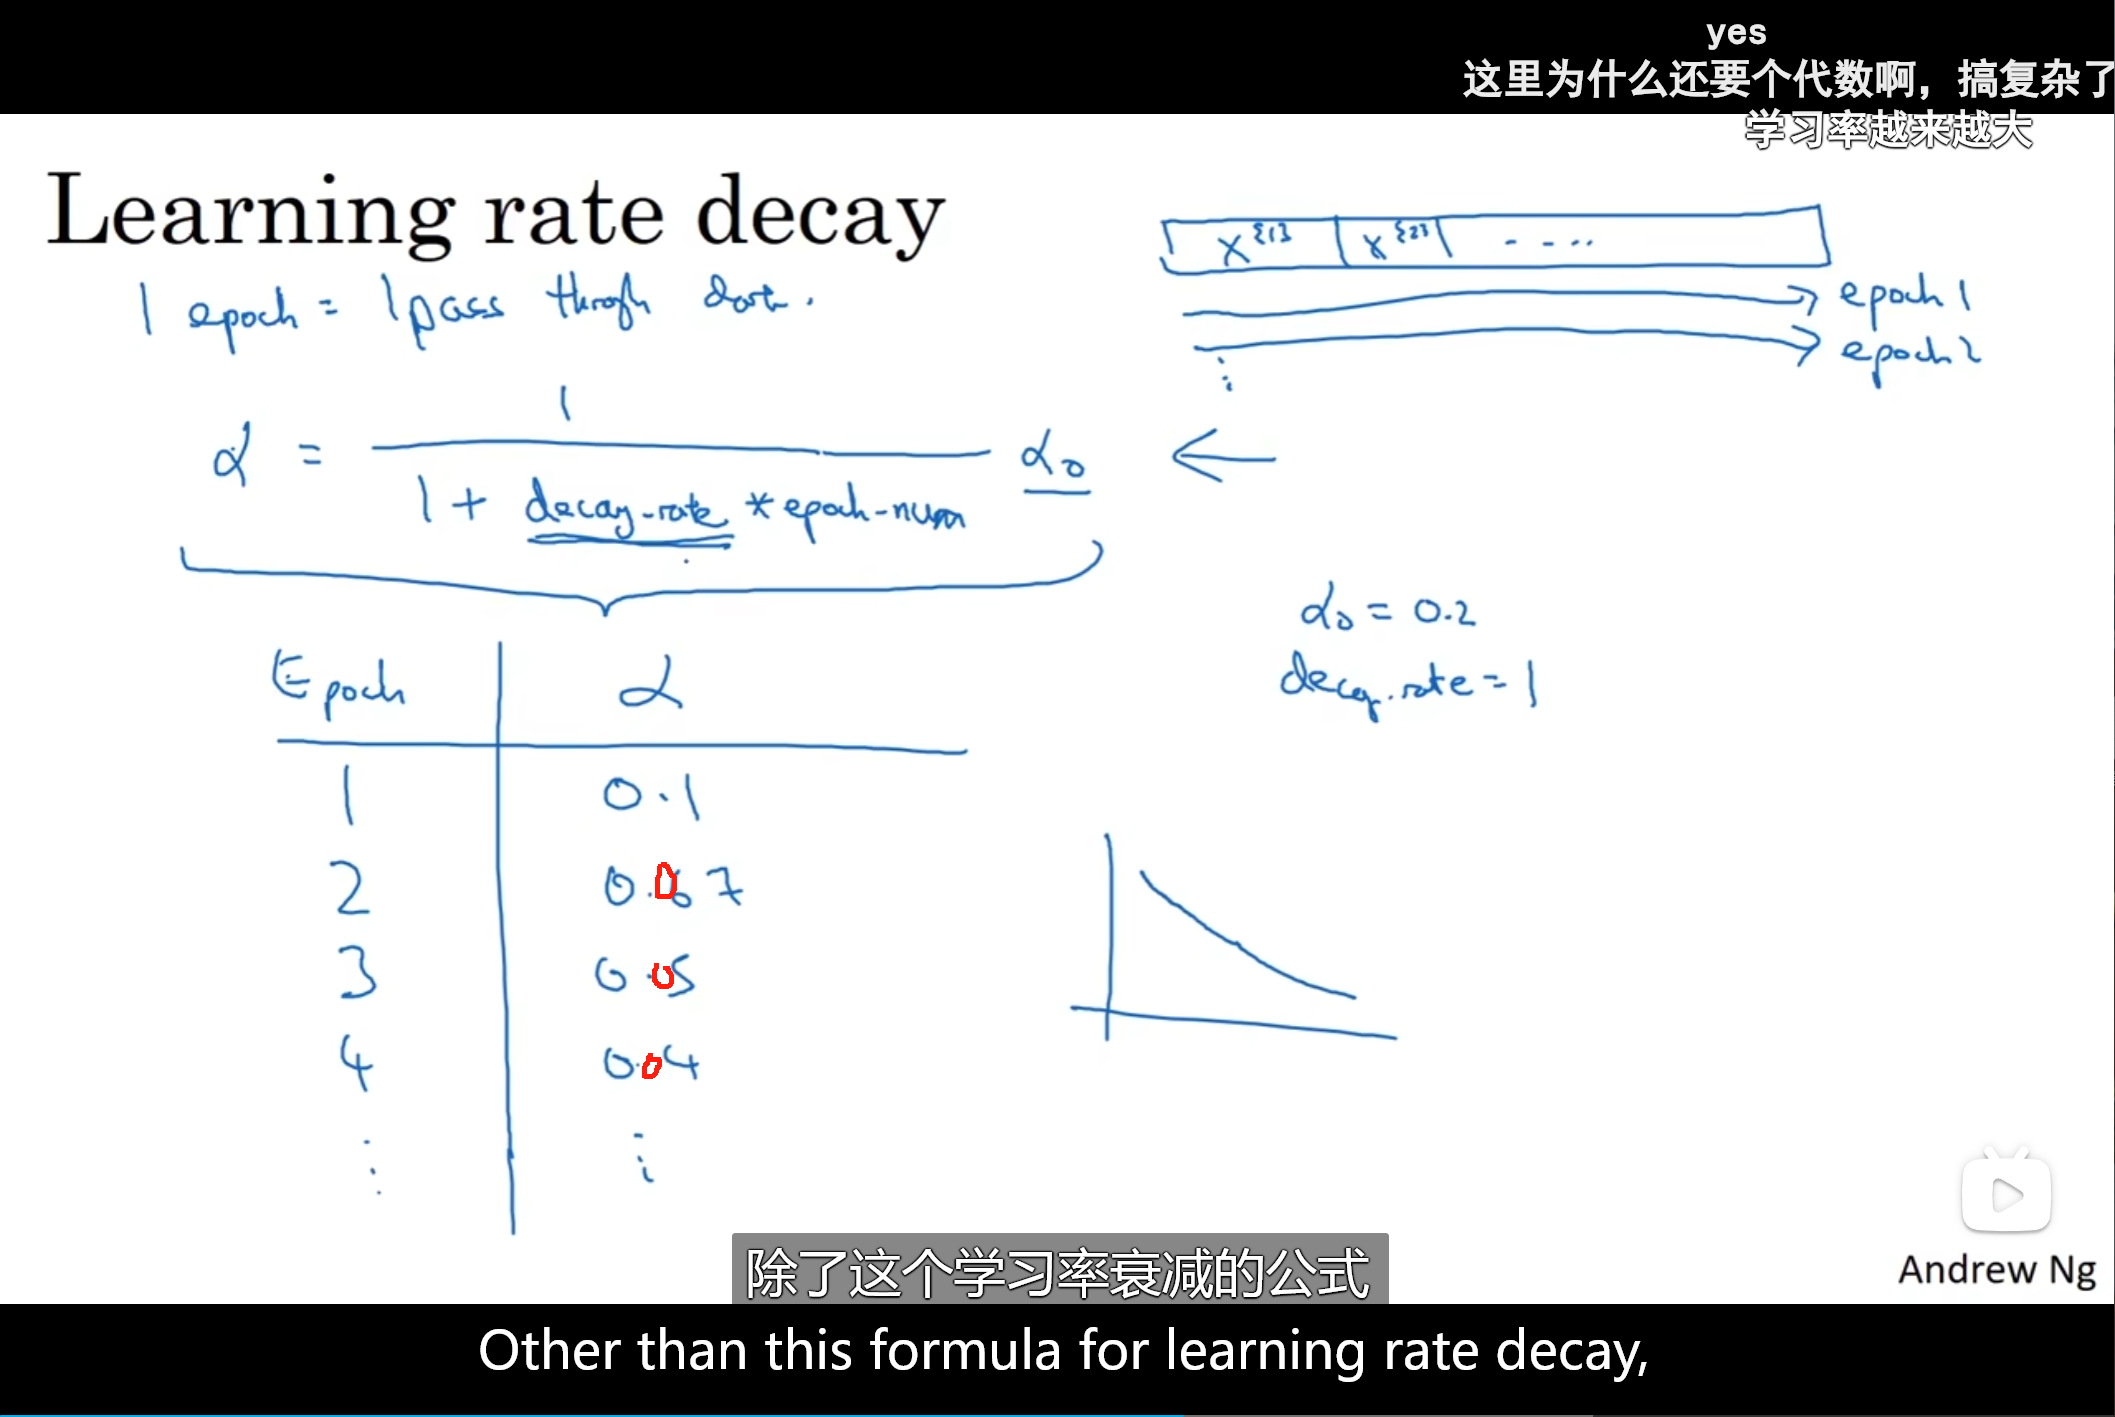 yes
这里为什么还要个代数啊，搞复杂了
学习率越来越大
Learning rate decay
1 epoch = 1 pass throgh dat.
X{1} X{2} ....
epoch 1
epoch 2
⋮
α = 1 / (1 + decay-rate * epoch-num) α₀ ←
α₀ = 0.2
decay.rate = 1
Epoch α
1 0.1
2 0.067
3 0.05
4 0.04
⋮ ⋮
Andrew Ng
除了这个学习率衰减的公式
Other than this formula for learning rate decay,